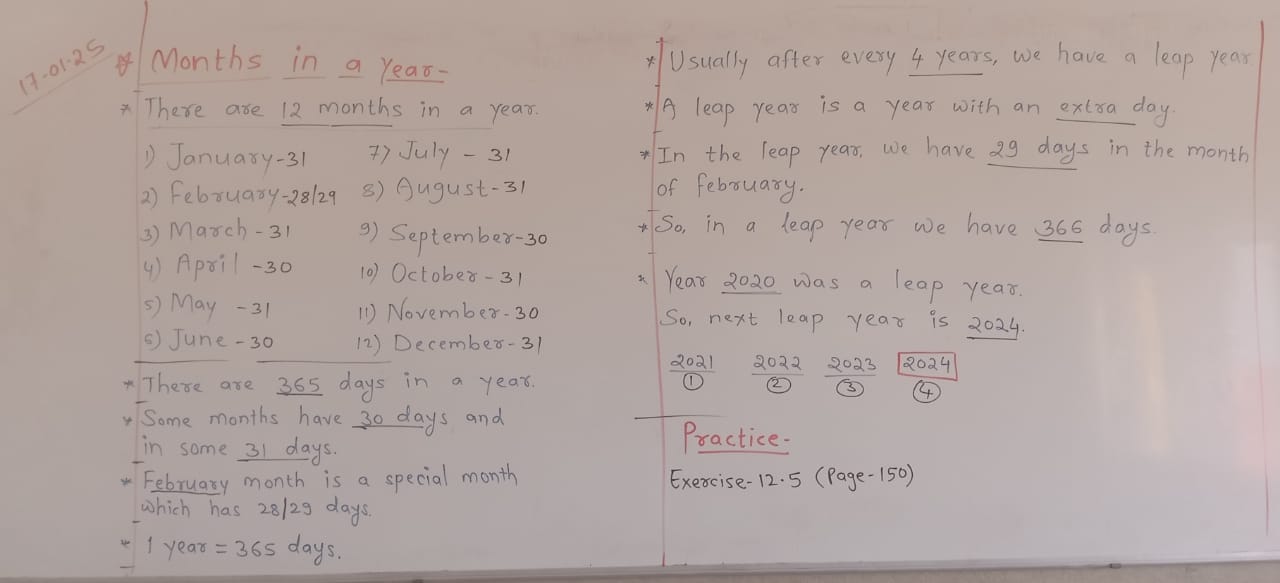 17-01-25
* Months in a Year-
* There are 12 months in a year.
1) January-31
2) February-28/29
3) March-31
4) April-30
5) May-31
6) June-30
7) July-31
8) August-31
9) September-30
10) October-31
11) November-30
12) December-31
* There are 365 days in a year.
* Some months have 30 days and
in some 31 days.
* February month is a special month
which has 28/29 days.
* 1 year = 365 days.
* Usually after every 4 years, we have a leap year
* A leap year is a year with an extra day.
* In the leap year, we have 29 days in the month
of february.
* So, in a leap year we have 366 days.
* Year 2020 was a leap year.
So, next leap year is 2024.
2021 2022 2023 2024
1 2 3 4
Practice-
Exercise-12.5 (Page-150)